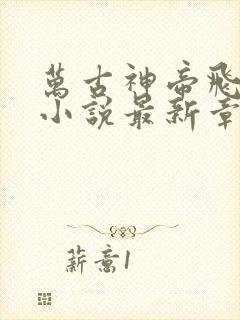 萬古神帝飛
小說最新章
薪意1